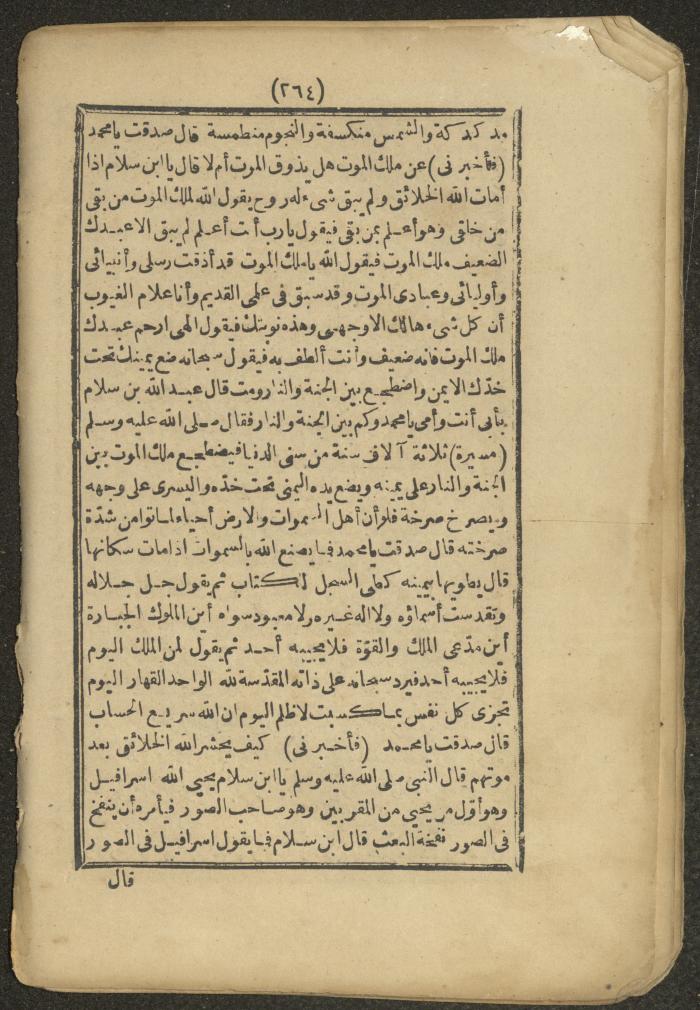 (٢٦٤)
مدكدكة والشمس منكسفة والنجوم منطمسة قال صدقت يا محمد
(فأخبرنى) عن ملك الموت هل يذوق الموت أم لا قال يا ابن سلام اذا
أمات الله الخلائق ولم يبق شىء له روح يقول الله لملك الموت من بقى
من خلقى وهو أعلم بمن بقى فيقول يارب أنت أعلم لم يبق الا عبدك
الضعيف ملك الموت فيقول الله يا ملك الموت قد أذقت رسلى وأنبيائى
وأوليائى وعبادى الموت وقد سبق فى علمى القديم وأنا علام الغيوب
أن كل شىء هالك الا وجهى وهذه نوبتك فيقول الهى ارحم عبدك
ملك الموت فانه ضعيف وأنت ألطف به فيقول سبحانه ضع يمينك تحت
خدك الايمن واضطجع بين الجنة والنار ومت قال عبد الله بن سلام
بأبى أنت وأمى يا محمد وكم بين الجنة والنار فقال صلى الله عليه وسلم
(مسيرة) ثلاثة آلاف سنة من سنى الدنيا فيضطجع ملك الموت بين
الجنة والنار على يمينه ويضع يده اليمنى تحت خده واليسرى على وجهه
ويصرخ صرخة فلو أن أهل السموات والارض أحياء لماتوا من شدّة
صرخته قال صدقت يا محمد فما يصنع الله بالسموات اذا مات سكانها
قال يطويها بيمينه كطى السجل للكتاب ثم يقول جل جلاله
وتقدست أسماؤه ولا اله غيره ولا معبود سواه أين الملوك الجبابرة
أين مدّعى الملك والقوّة فلا يجيبه أحد ثم يقول لمن الملك اليوم
فلا يجيبه أحد فيرد سبحانه على ذاته المقدّسة لله الواحد القهار اليوم
تجزى كل نفس بما كسبت لا ظلم اليوم ان الله سريع الحساب
قال صدقت يا محمد (فأخبرنى) كيف يحشر الله الخلائق بعد
موتهم قال النبى صلى الله عليه وسلم يا ابن سلام يحيى الله اسرافيل
وهو أوّل من يحيى من المقربين وهو صاحب الصور فيأمره أن ينفخ
فى الصور نفخة البعث قال ابن سلام فما يقول اسرافيل فى الصور
قال